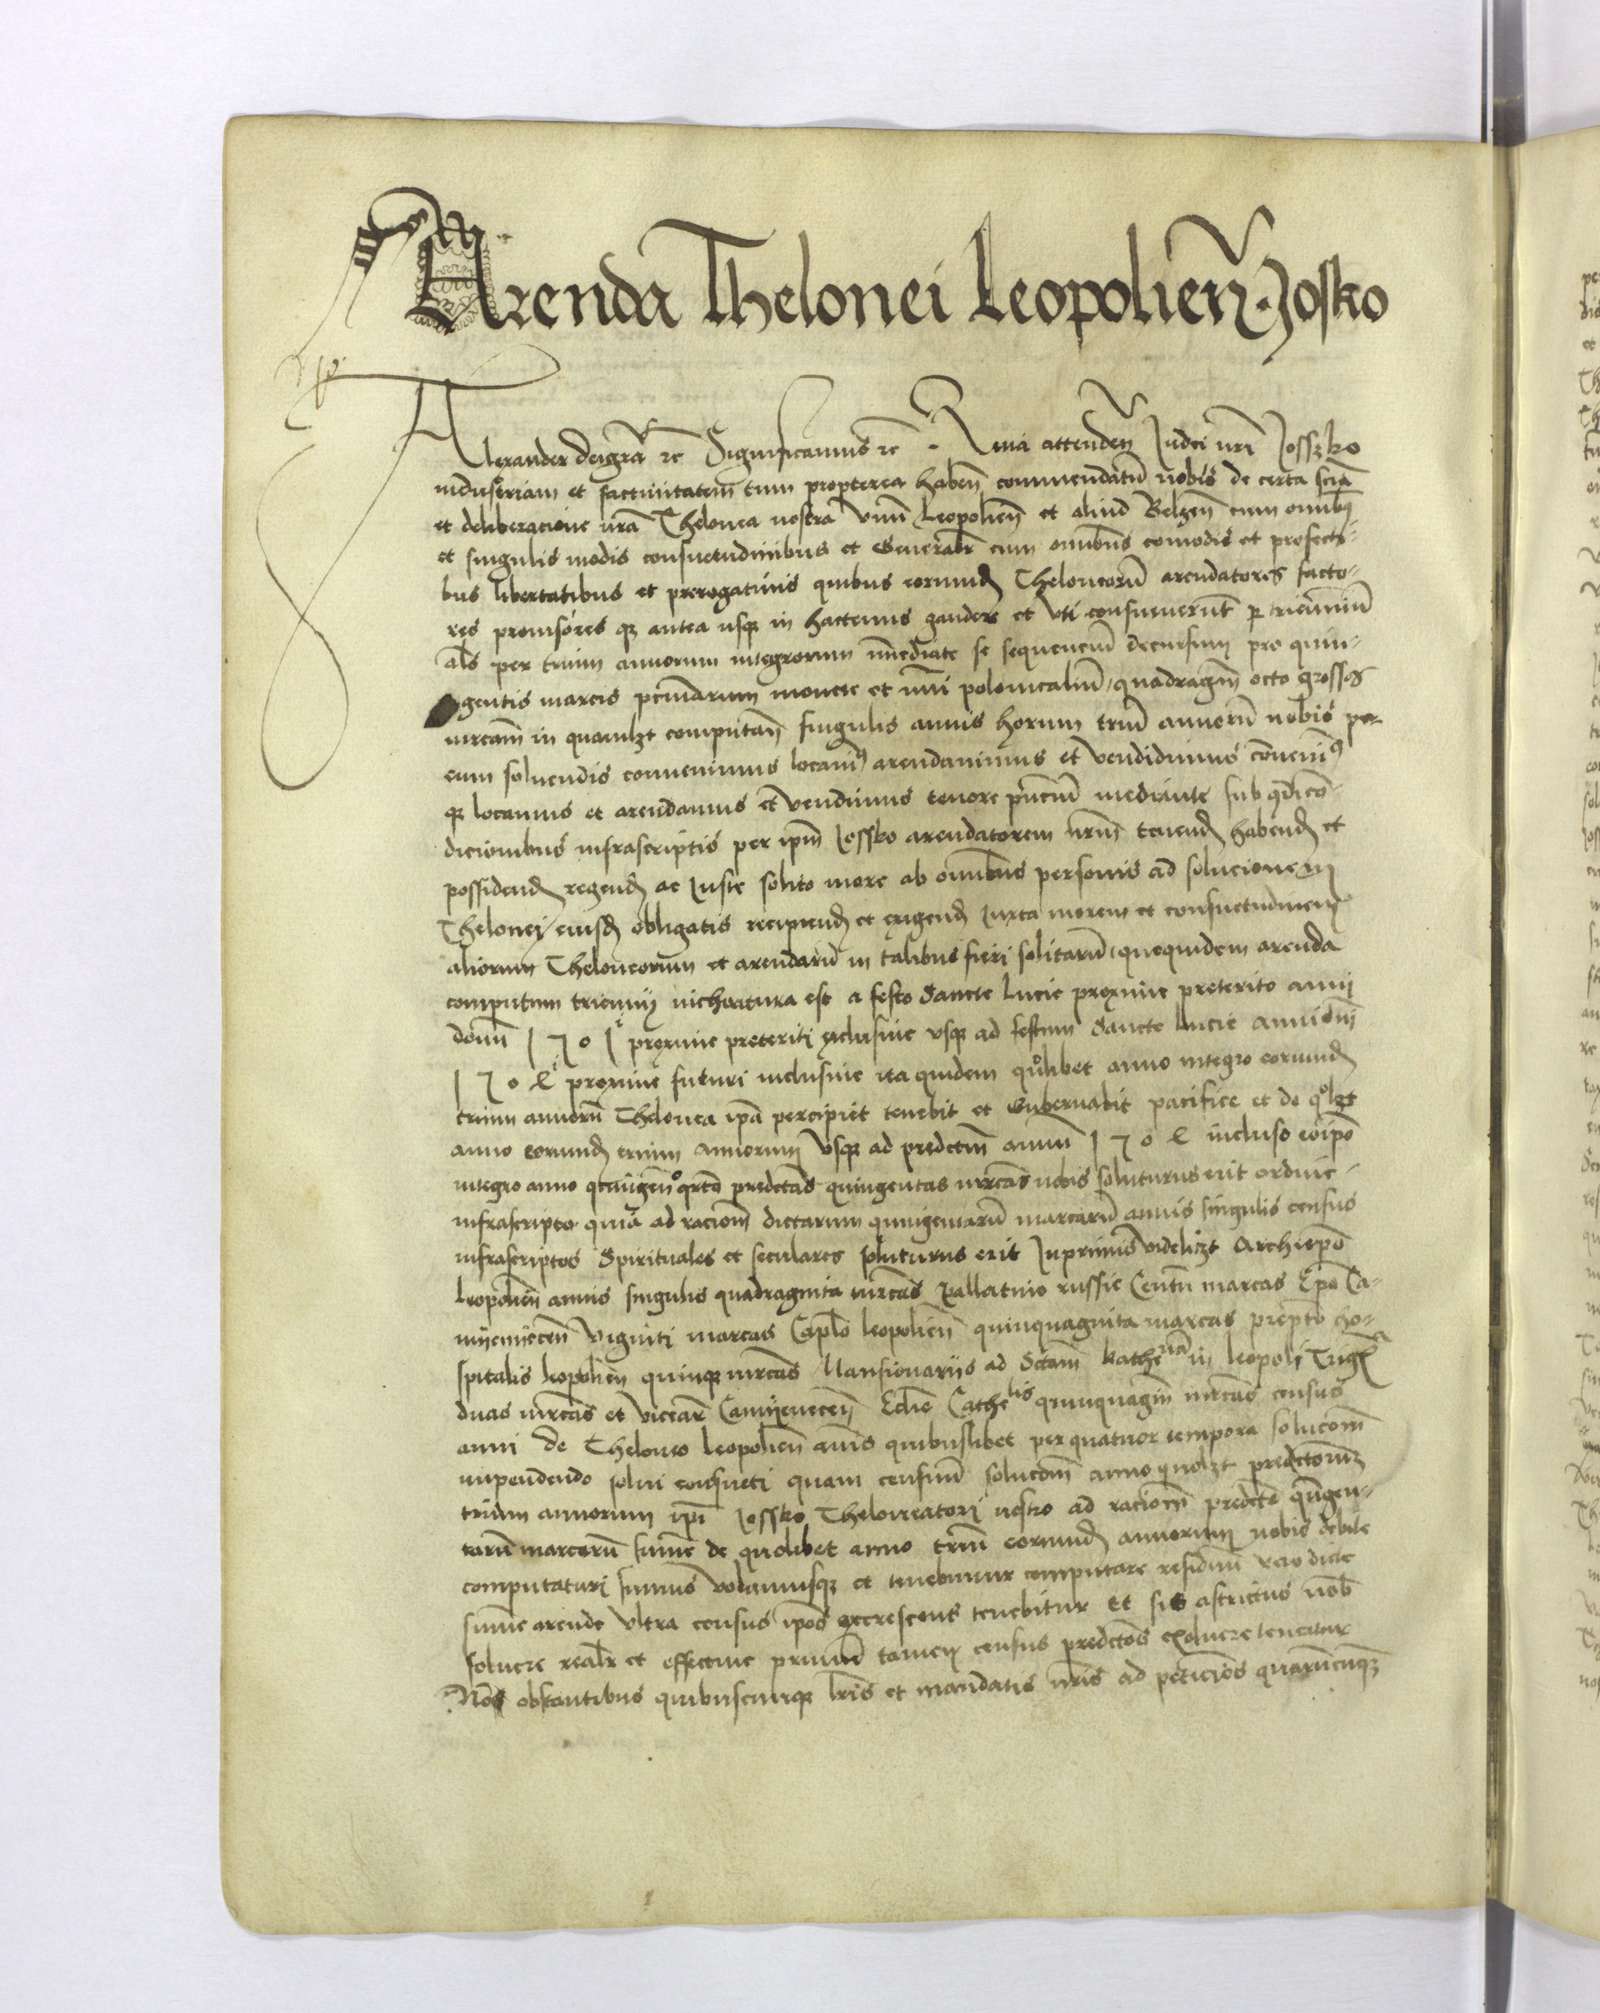 Arenda Thelonei Leopolien̄. Josko
Alexander deigr̄a ꝛc Significamus ꝛc. Quia attenden̄ Judei nr̄i Josszko
industriam et facturitatem tum propterea haben̄ commendatū nobis de certa scīa
et deliberacione nr̄a Thelonea nostra vnū Leopolien̄ et aliud Belzen̄ cum omnibꝫ
et singulis modis consuetudinibus et generalr̄ cum omnibus comodis et profecti-
bus libertatibus et prerogatiuis quibus eorumd̄ Theloneorū arendatores facto-
res prouisores qꝫ antea usqꝫ in hactenus gaudere et vti consueuerūt ꝑ trienniū
al̄s per trium annorum integrorum īmediate se sequenciū decursum pro quin-
gentis marcis pecuniarum monete et nūi polonicaliū, quadragin̄ octo grossos
mrcam̄ in quamlꝫt computan̄ singulis annis horum triū annorū nobis per
eum soluendis conuenimus locauimꝰ arendauimus et vendidimus cōuenimꝰ
qꝫ locamus et arendamus et vendimus tenore pn̄ciū mediante sub
dicionibus infrascriptis per ip̄m Jossko arendatorem nr̄um tenend̄ habend̄ et
possidend̄ regend̄ ac juste solito more ab omnibus personis ad solucionem
Thelonei eiusd̄ obligatis recipiend̄ et exigend̄ Juxta morem et consuetudinem
aliorum Theloneorum et arendarū in talibus fieri solitarū, quequidem arenda
computum triennij inchoatura est a festo Sancte Lucie proxime preterito anni
domī 1501 proxime preteriti exclusiue vsqꝫ ad festum Sancte Lucie anni dnī
1504 proxime futuri inclusiue ita quidem qͦlibet anno integro eorumd̄
trium annorū Thelonea ip̄a percipiet tenebit et gubernabit pacifice et de qͦlꝫt
anno eorumd̄ trium annorum vsqꝫ ad predctm̄ annū 1504 incluso eoip̄o
integro anno predctas̄ quingentas mrcas̄ nobis soluturus erit ordine
infrascripto quia ad racionē dictarum quingentarū marcarū annis singulis census
infrascriptos Spirituales et seculares soluturus erit Inprimis videlicꝫt Archiep̄o
Leopolien̄ annis singulis quadraginta mrcas̄ Pallatino russie Centū marcas Ep̄o Ca-
myenyecen̄ viginti marcas Capl̄o leopolien̄ quinquaginta marcas prepto ho-
spitalis leopolien̄ quinqꝫ mrcas̄ Mansionariis ad Sctam̄ Katherinā in leopoli
duas mrcas̄ et vicear̄ Camyenecen̄ Eccl̄ie Cathelis quinquagin̄ mrcas̄ census
anni de Theloneo leopolien̄ annis quibuslibet per quatuor tempora solucom̄
inpendendo solui consueti quam censuū solucom̄ anno quolꝫt predctorum̄
trium annorum ip̄i Jossko Theloneatori nostro ad racionē predcte quingen-
tarū marcarū sum̄e de quolibet anno triū eorumd̄ annorum nobis debite
computaturi sumus volumusqꝫ et tenebimur computare residuū vero dicte
sum̄e arende vltra census ip̄os excrescens tenebitur et sit astrictus nob̄
soluere realr̄ et effectiue primū tamen census predctos̄ exoluere teneatur
Non obstantibus quibuscumqꝫ lr̄is et mandatis nr̄is ad peticiōs quarūcūqꝫ